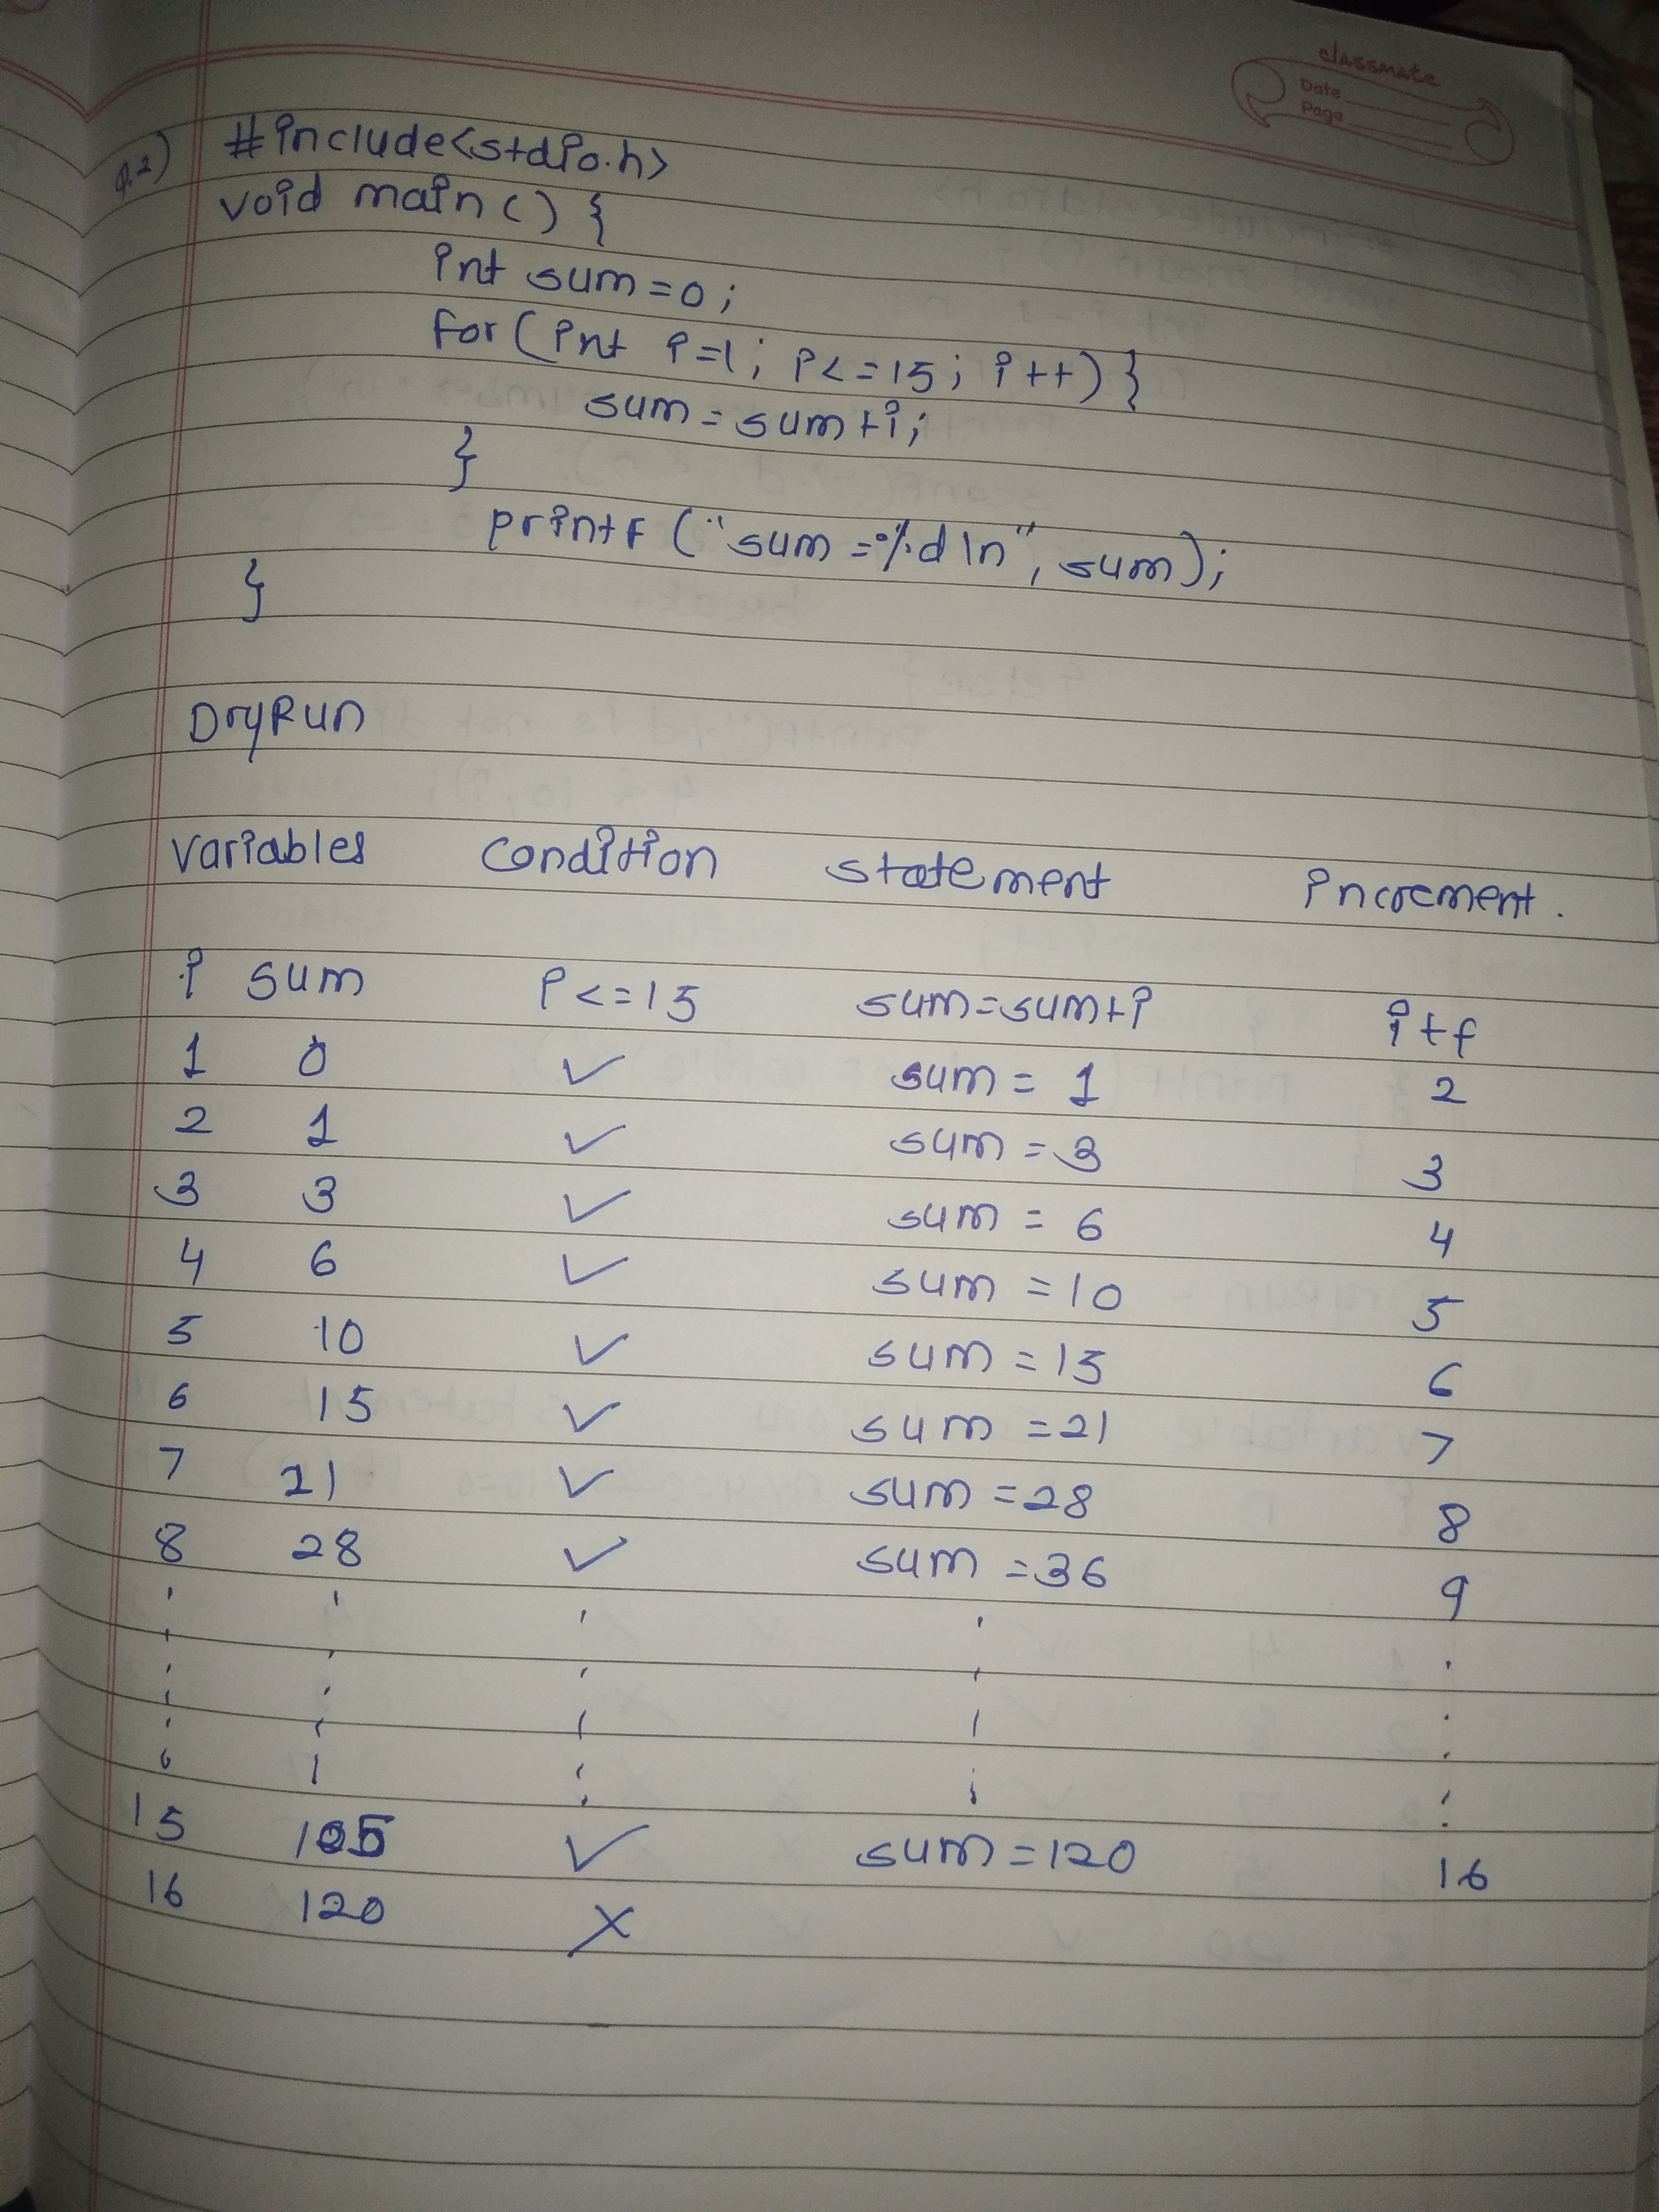 classmate
Date
Page
Q.2) #include<stdio.h>
void main() {
int sum=0;
for(int i=1; i<=15; i++) }
sum=sum+i;
}
printf("sum=%d\n", sum);
}
DryRun
Variables Condition statement increment.
i sum i<=15 sum=sum+i i++
1 0 ✓ sum=1 2
2 1 ✓ sum=3 3
3 3 ✓ sum=6 4
4 6 ✓ sum=10 5
5 10 ✓ sum=15 6
6 15 ✓ sum=21 7
7 21 ✓ sum=28 8
8 28 ✓ sum=36 9
15 105 ✓ sum=120 16
16 120 X